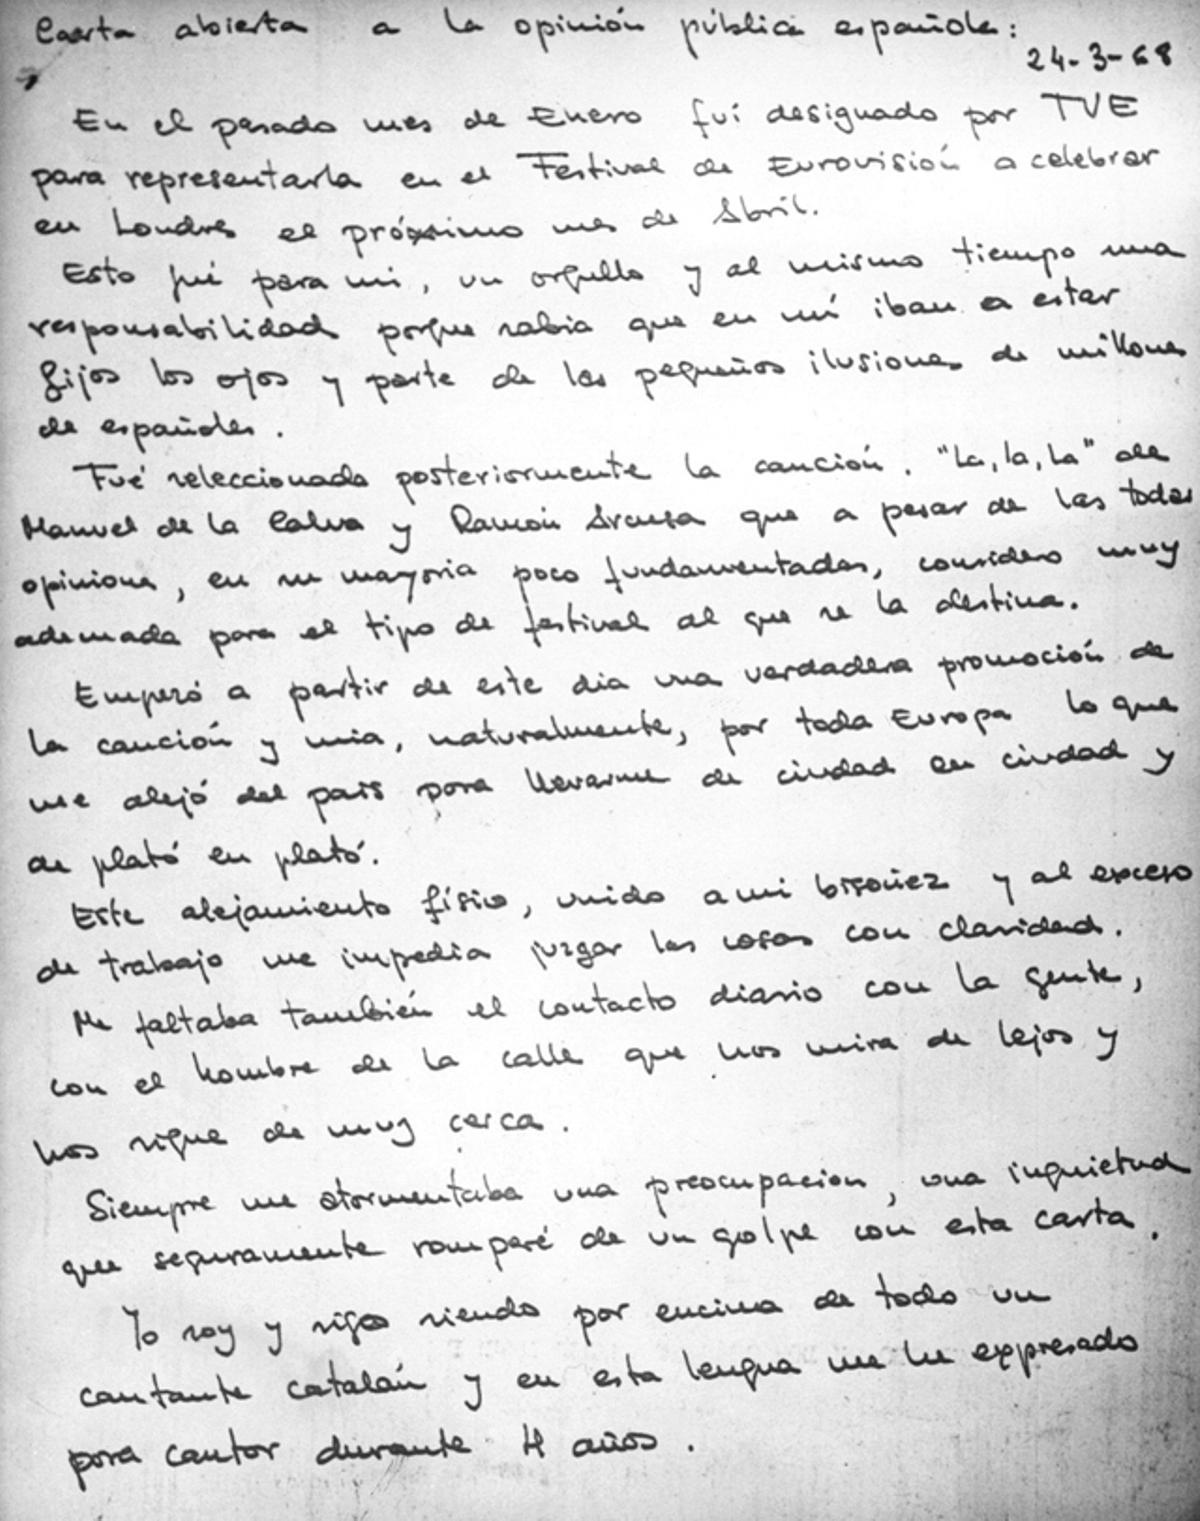 Carta abierta a la opinión pública española:
24-3-68
En el pasado mes de Enero fuí designado por TVE
para representarla en el Festival de Eurovisión a celebrar
en Londres el próximo mes de Abril.
Esto fué para mi, un orgullo y al mismo tiempo una
responsabilidad porque sabia que en mí iban a estar
fijos los ojos y parte de las pequeñas ilusiones de millones
de españoles.
Fué seleccionada posteriormente la canción. "La, la, La" de
Manuel de la Calva y Ramón Arcusa que a pesar de las todas
opiniones, en su mayoria poco fundamentadas, considero muy
adecuada para el tipo de festival al que se la destina.
Empezó a partir de este dia una verdadera promoción de
la canción y mia, naturalmente, por toda Europa lo que
me alejó del pais para llevarme de ciudad en ciudad y
de plató en plató.
Este alejamiento físico, unido a mi bisoñez y al exceso
de trabajo me impedia juzgar las cosas con claridad.
Me faltaba también el contacto diario con la gente,
con el hombre de la calle que nos mira de lejos y
nos sigue de muy cerca.
Siempre me atormentaba una preocupacion, una inquietud
que seguramente romperé de un golpe con esta carta.
Yo soy y sigo siendo por encima de todo un
cantante catalán y en esta lengua me he expresado
para cantar durante 4 años.